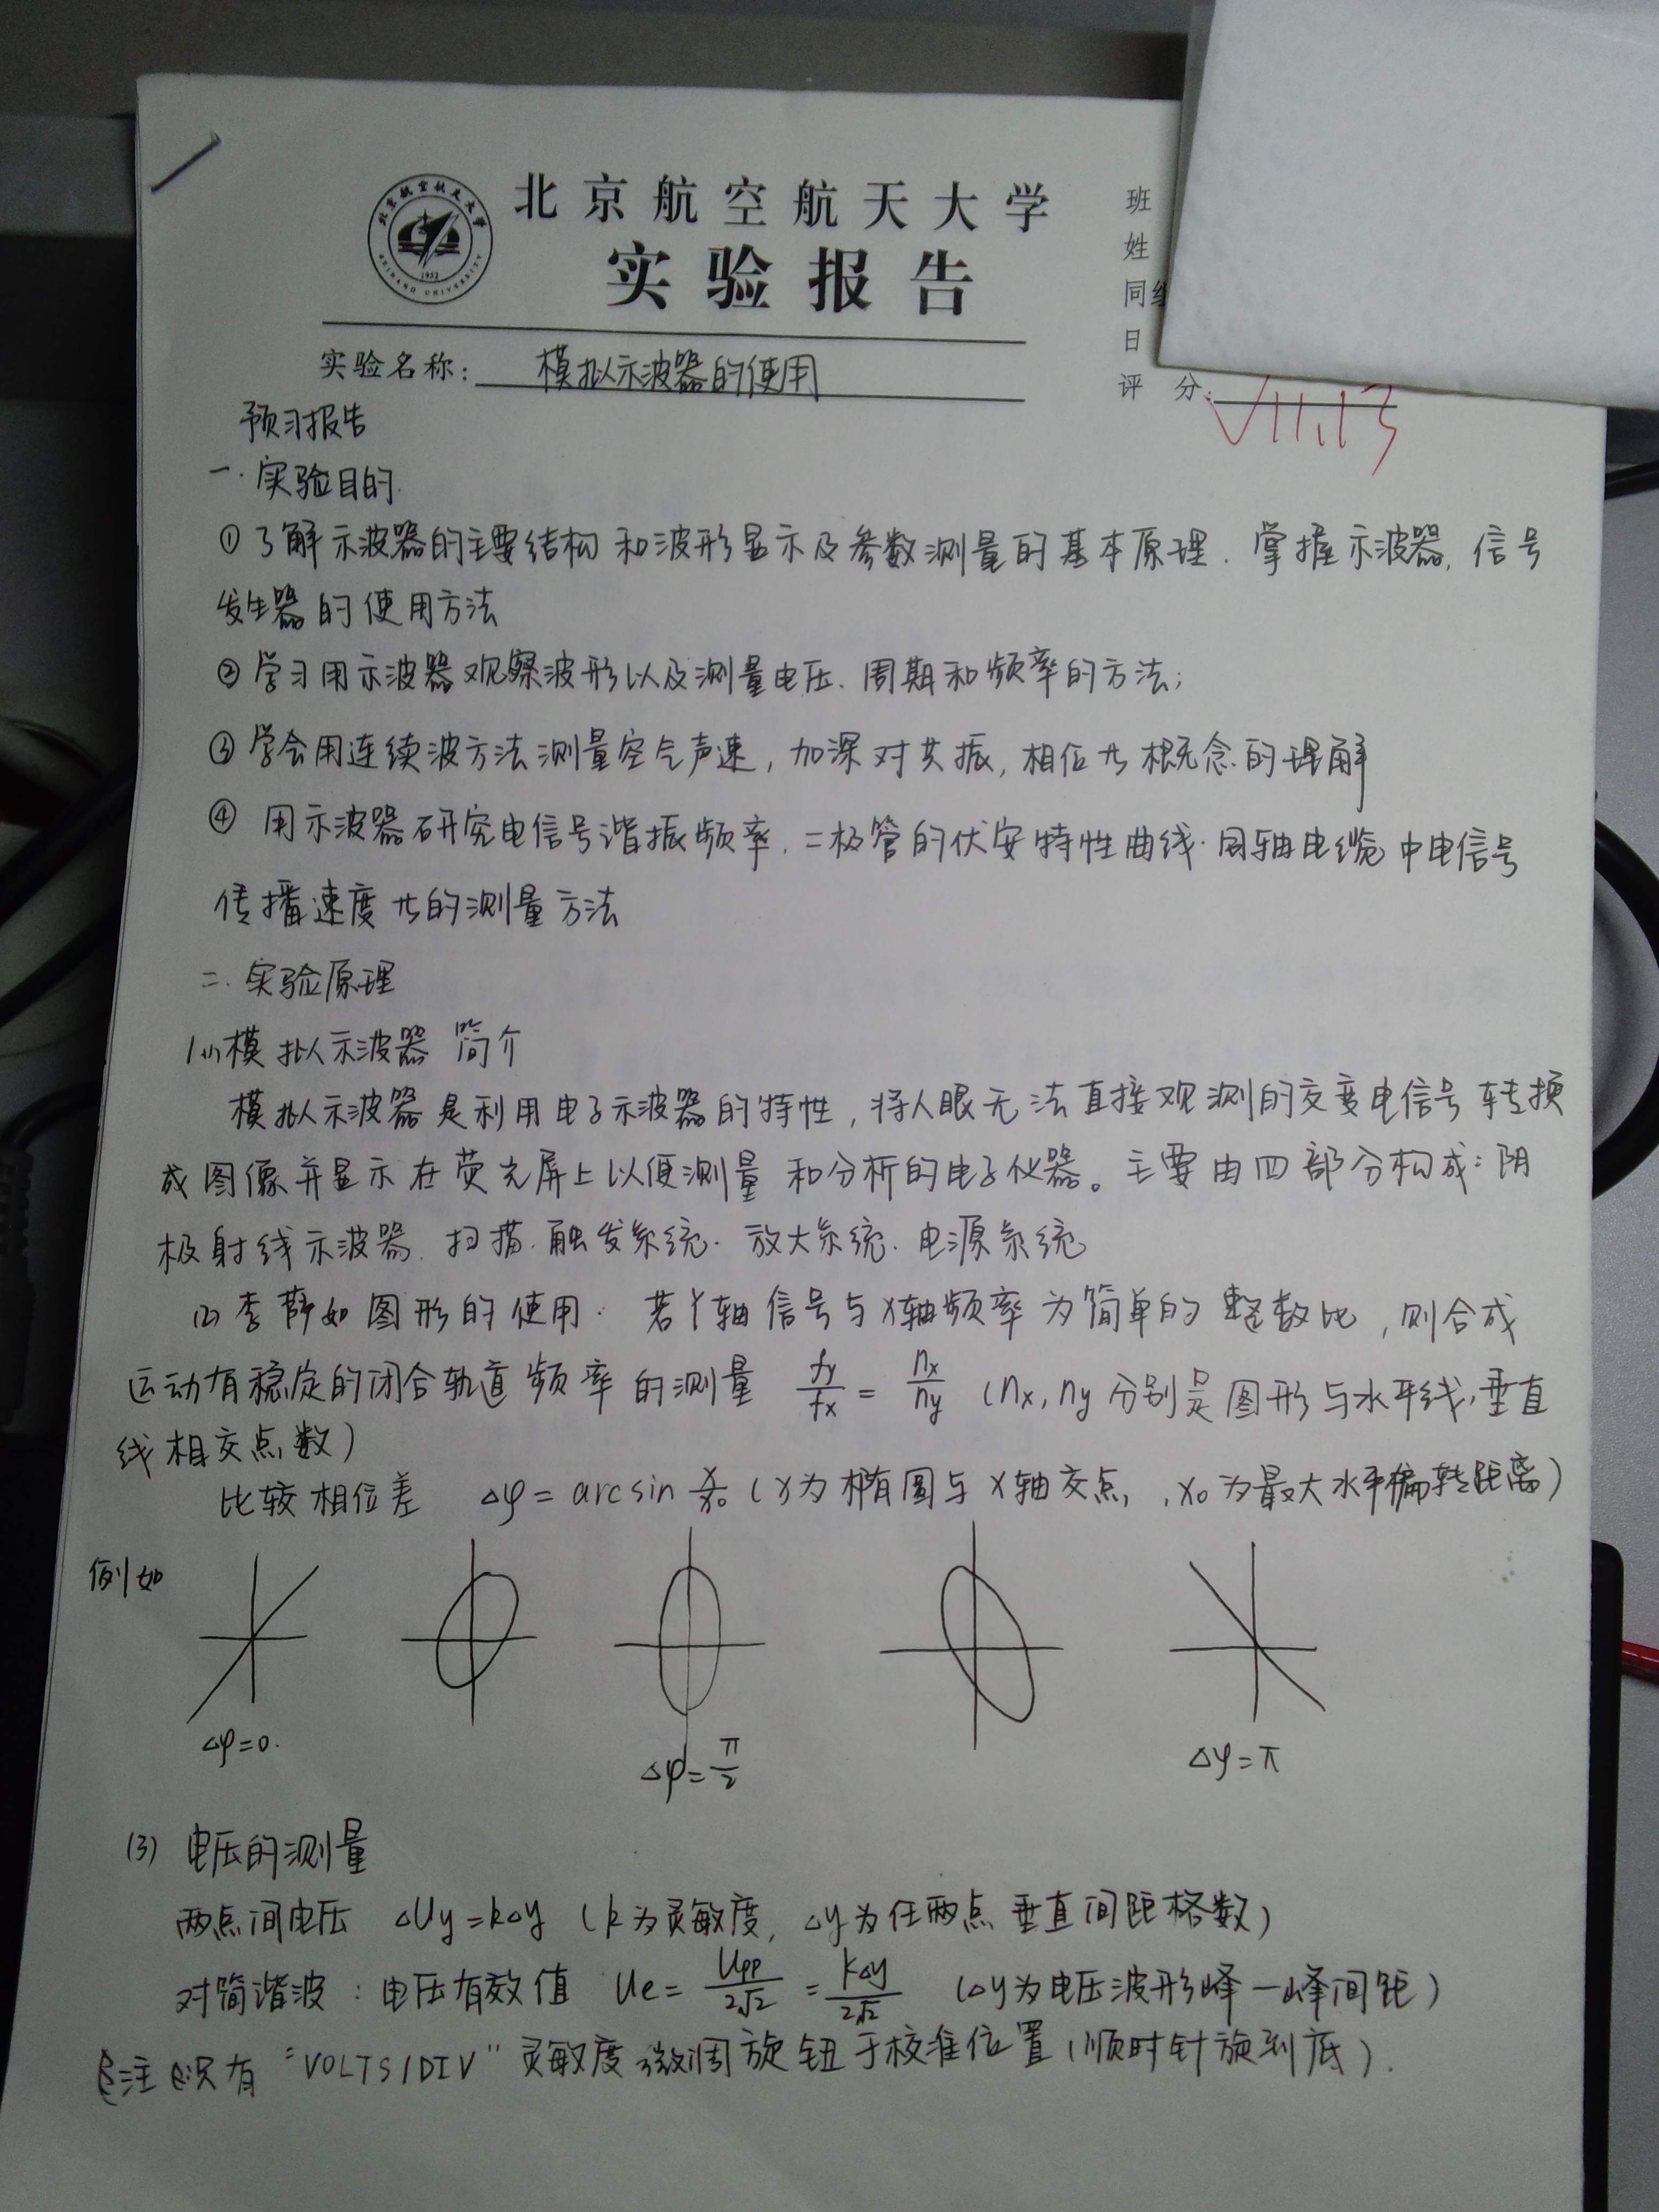 北京航空航天大学
实验报告
北京航空航天大学
BEIHANG UNIVERSITY
1952
班
姓
同组
日
评 分:
√11.13
实验名称: 模拟示波器的使用
预习报告
一.实验目的.
①了解示波器的主要结构和波形显示及参数测量的基本原理.掌握示波器,信号
发生器的使用方法
②学习用示波器观察波形以及测量电压、周期和频率的方法;
③学会用连续波方法测量空气声速,加深对共振,相位等概念的理解
④用示波器研究电信号谐振频率、二极管的伏安特性曲线.同轴电缆中电信号
传播速度等的测量方法
二.实验原理
1.(1)模拟示波器简介
模拟示波器是利用电子示波器的特性,将人眼无法直接观测的交变电信号转换
成图像并显示在荧光屏上以便测量和分析的电子仪器。主要由四部分构成:阴
极射线示波器.扫描.触发系统.放大系统.电源系统
(2)李萨如图形的使用.若Y轴信号与X轴频率为简单的整数比,则合成
运动有稳定的闭合轨道 频率的测量 fy/fx = nx/ny (nx, ny分别是图形与水平线,垂直
线相交点数)
比较相位差 Δφ = arcsin x/x₀ (x为椭圆与X轴交点,,x₀为最大水平偏转距离)
例如
Δφ=0.
Δφ=π/2
Δφ=π
(3) 电压的测量
两点间电压 ΔUy=kΔy (k为灵敏度,Δy为任两点垂直间距格数)
对简谐波:电压有效值 Ue=Upp/2√2=kΔy/2√2 (Δy为电压波形峰一峰间距)
注 只有"VOLTS/DIV"灵敏度微调旋钮于校准位置(顺时针旋到底).